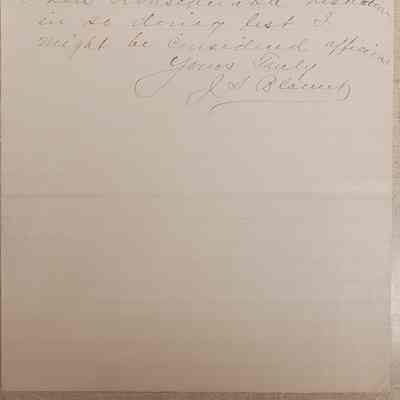 hesitation
in so doing lest I
might be considered officious
Yours Truly
J S Blount